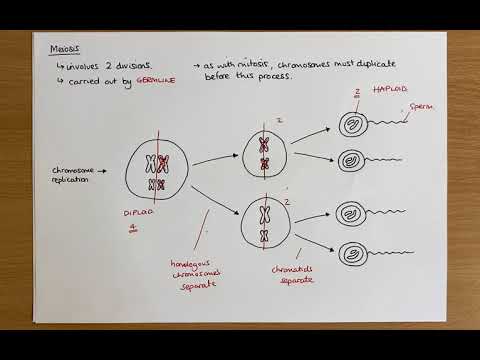 Meiosis
↳ involves 2 divisions.
↳ carried out by GERMLINE
→ as with mitosis, chromosomes must duplicate
before this process.
2 HAPLOID
Sperm.
2
Chromosome
replication
DIPLOID
4
2
homologous
chromosomes
separate
chromatids
separate